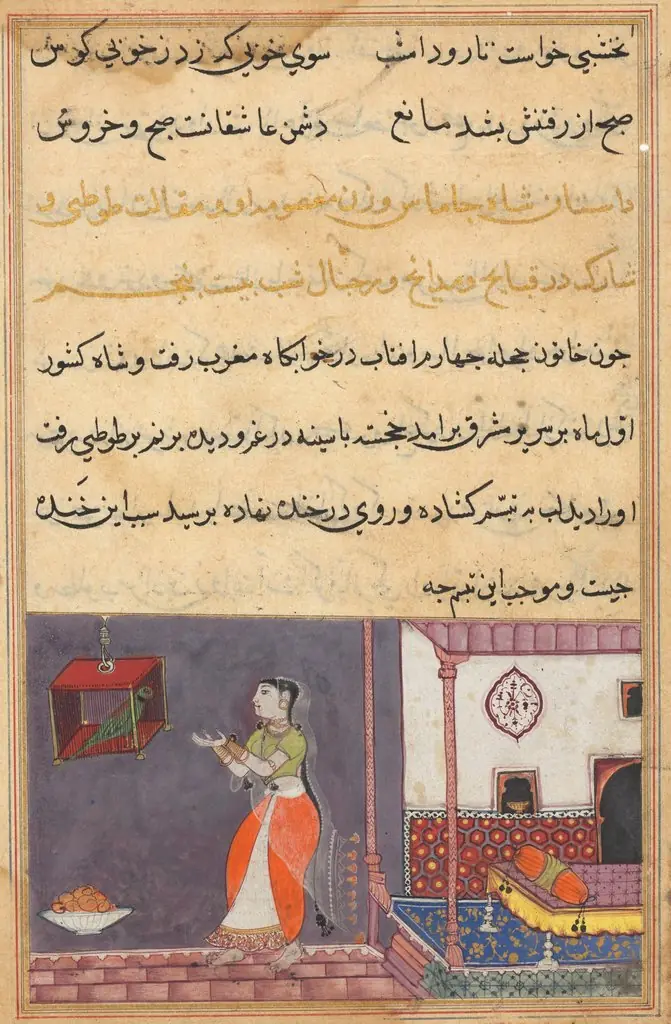 نخشبي خواست تا رود امشب سوي خوبي كه زد ز خوبي كوس
صبح از رفتنش بشد مانع دشمن عاشقانست صبح و خروس
داستان شاه جاماس و زن معصوم او و مقالت طوطي و
شارك در قبايح و مدايح و رجال شب بيست بنجم
جون خاتون حجله جهارم افتاب در خوابكاه مغرب رفت و شاه كشور
اول ماه بر سرير مشرق برامد خجسته با سينه در غم و ديده بر نم بر طوطي رفت
او را ديد لب به تبسّم كشاده و روي در خنده نهاده برسيد سبب اين خَنده
جيست و موجب اين تبسم جه